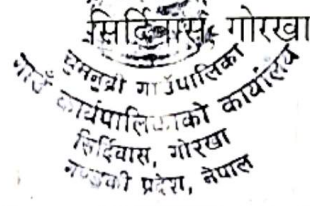 सिर्दिवास, गोरखा
चुमनुव्री गाउँपालिका
गाउँ कार्यपालिकाको कार्यालय
सिर्दिवास, गोरखा
गण्डकी प्रदेश, नेपाल